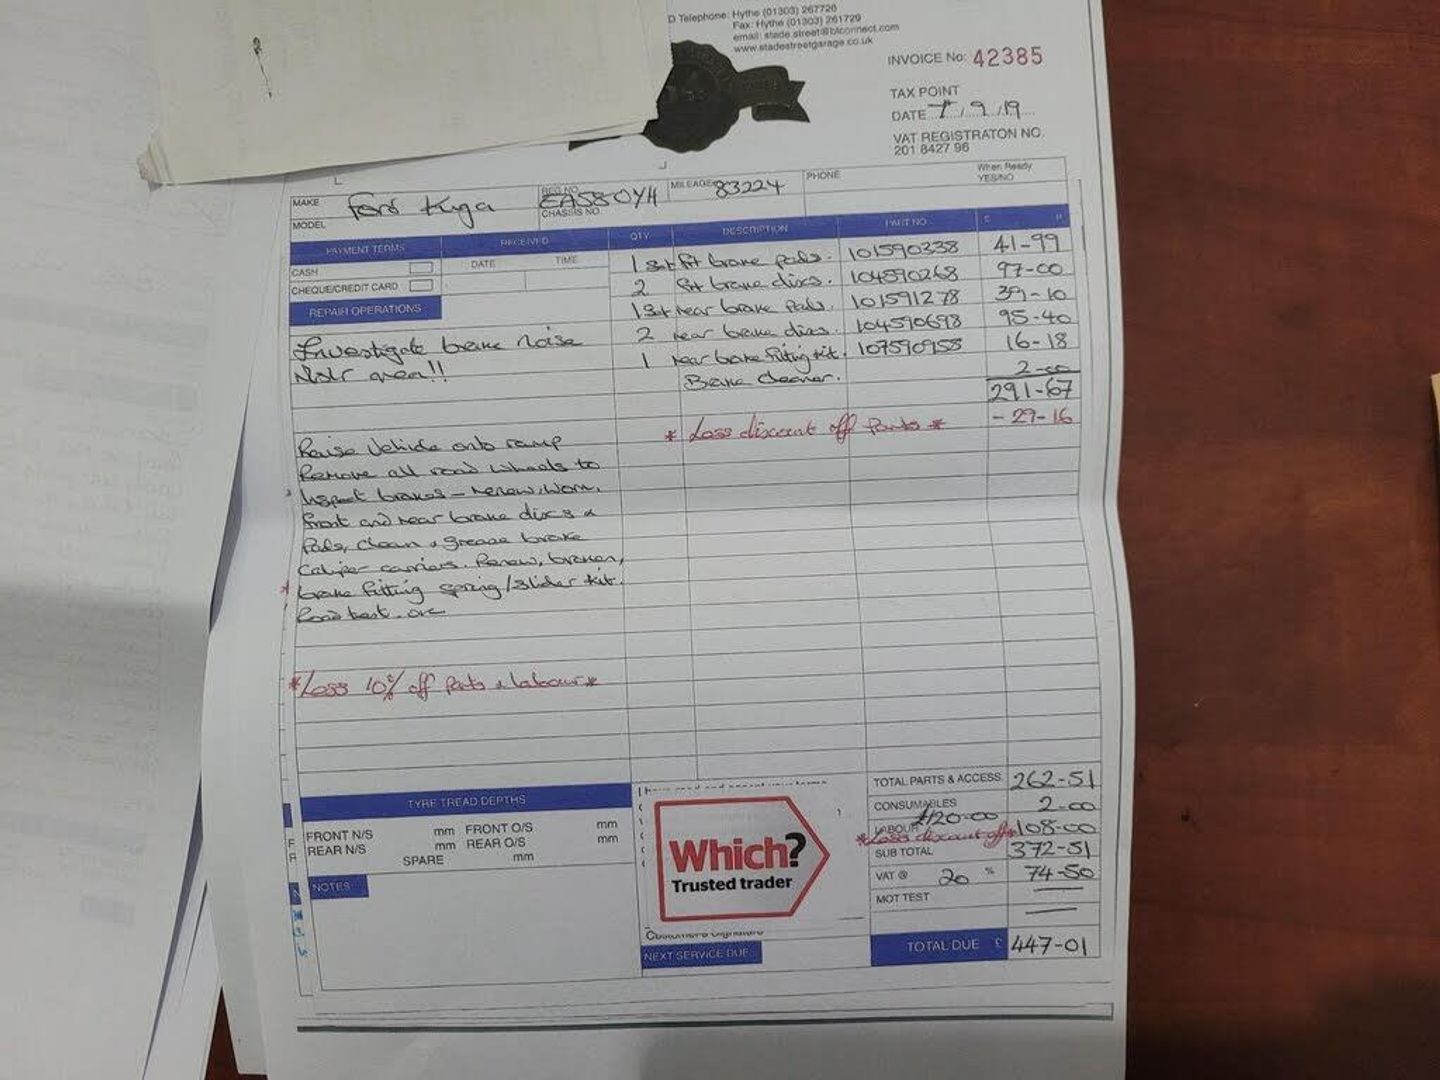 Telephone: Hythe (01303) 267726
Fax: Hythe (01303) 261729
email: stade.street@btconnect.com
www.stadestreetgarage.co.uk
INVOICE No: 42385
TAX POINT
DATE 7 / 9 / 19
VAT REGISTRATON NO.
201 8427 96
MAKE Ford Kuga
MODEL
REG NO. EA58 OYH
CHASSIS NO.
MILEAGE 83224
PHONE
When Ready
YES/NO
PAYMENT TERMS RECEIVED QTY DESCRIPTION PART NO. £ P
CASH DATE TIME
CHEQUE/CREDIT CARD
1 set frt brake pads. 101590338 41-99
2 frt brake discs. 104590268 97-00
1 set rear brake pads. 101591278 39-10
2 rear brake discs. 104590698 95-40
1 rear brake fitting kit. 107590958 16-18
Brake cleaner. 2-00
291-67
* Less discount off Parts * - 29-16
REPAIR OPERATIONS
Investigate brake noise
N/s/r area!!
Raise Vehicle onto ramp
Remove all road wheels to
Inspect brakes - renew, worn,
front and rear brake discs &
Pads, clean & grease brake
Caliper carriers. Renew, broken,
* brake fitting spring/slider kit.
Road test.
*Less 10% off Parts & labour*
TYRE TREAD DEPTHS
FRONT N/S mm FRONT O/S mm
REAR N/S mm REAR O/S mm
SPARE mm
NOTES
Which?
Trusted trader
Customers Signature
NEXT SERVICE DUE
TOTAL PARTS & ACCESS. 262-51
CONSUMABLES 2-00
LABOUR £120-00 108-00
*Less discount off*
SUB TOTAL 372-51
VAT @ 20 % 74-50
MOT TEST
TOTAL DUE £ 447-01